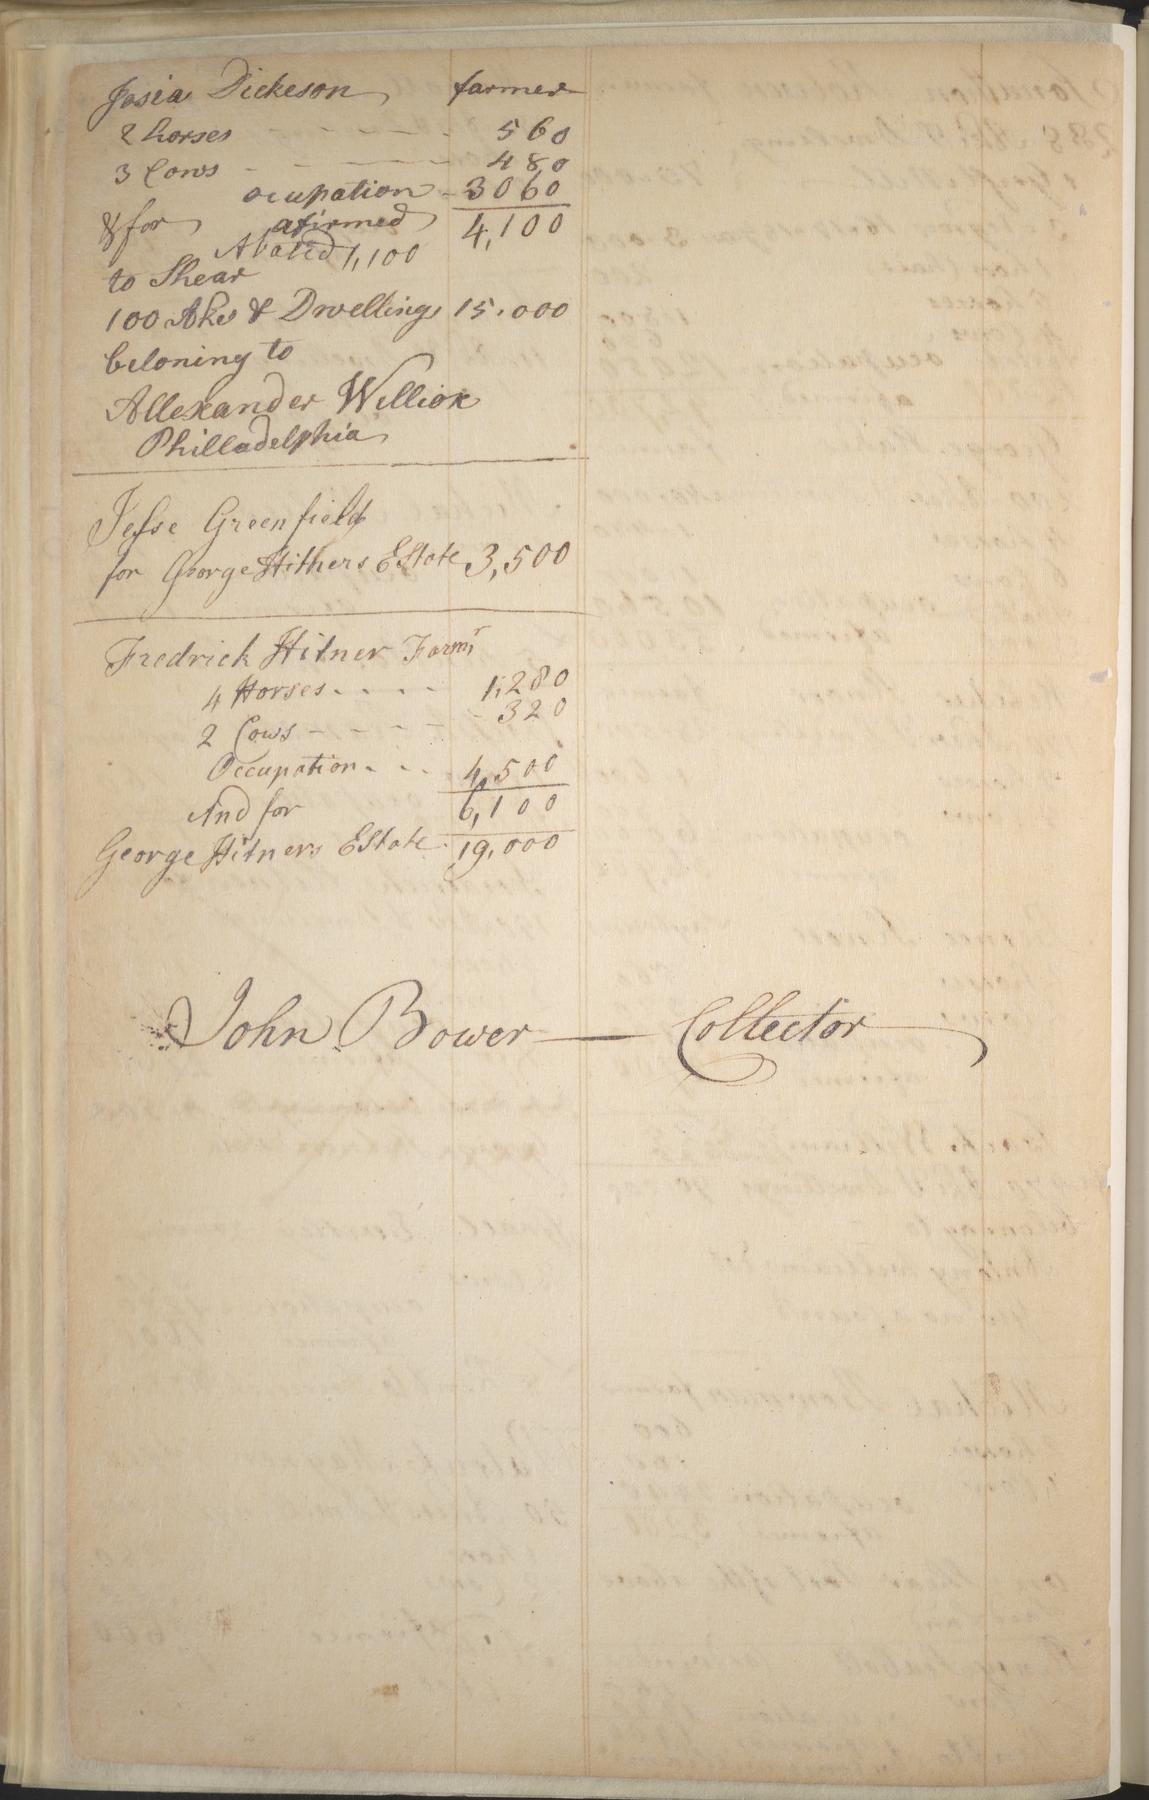 Josia Dickeson farmer
2 horses - - - - - 560
3 Cows - - - - - 480
ocupation - 3060
& for afirmed 4,100
Abated 1,100
to Shear
100 Akes & Dwellings 15.000
beloning to
Allexander Willion
Philladelphia
Jesse Greenfield
for George Hithers EState 3,500
Fredrick Hitner Farmr
4 Horses . . . . 1,280
2 Cows - - - - - - 320
Occupation . . . 4,500
And for 6,100
George Hitners EState 19,000
John Bower — Collector